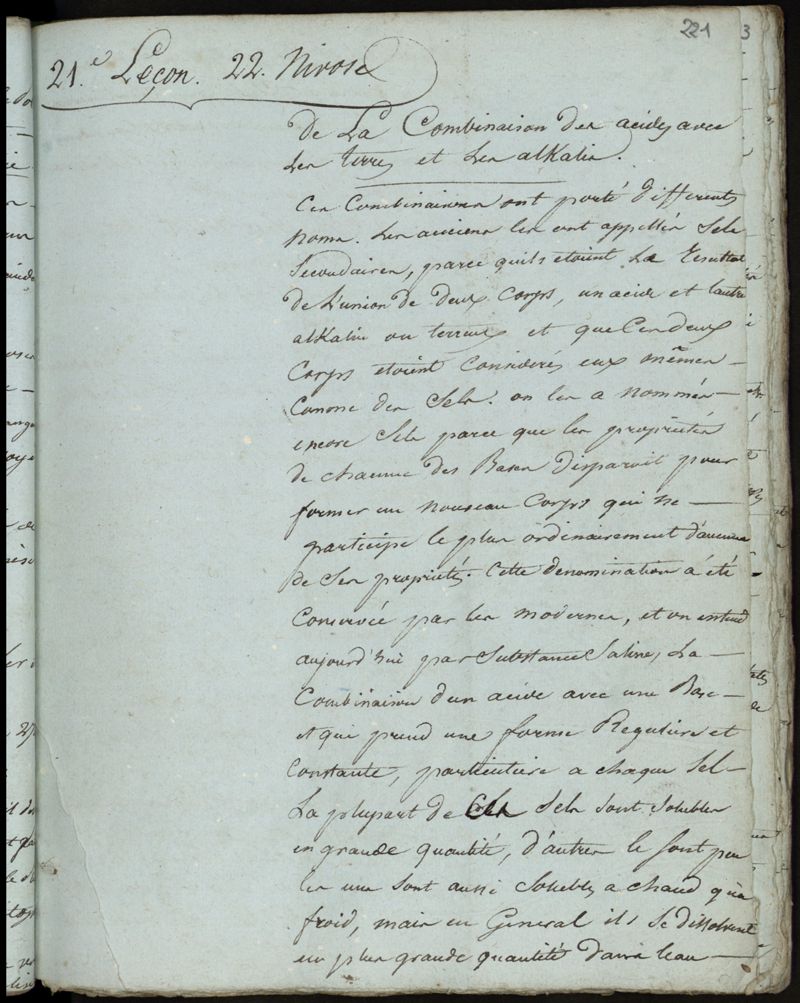 221
21.e Leçon. 22. Nivose
De La Combinaison des acides avec
Les terres et Les alkalis.
Ces Combinaisons ont porté differents
noms. Les anciens les ont appellés Sels
Secondaires, parce quils etoient Le Resultat
de L'union de deux Corps, un acide et l'autre
alkalin ou terreux et que Ces deux
Corps etoient Considerés eux mêmes
Comme des Sels. on les a nommés
encore Sels parce que les proprietés
de chacune des Bases disparoit pour
former un nouveau Corps qui ne
participe le plus ordinairement d'aucune
de Ses proprietés. Cette denomination a été
Conservée par les modernes, et on entend
aujourd'hui par Substance Saline, La
Combinaison d'un acide avec une Base
et qui prend une forme Reguliere et
Constante, particuliere a chaque Sel
La plupart de Ces Sels Sont Solubles
en grande quantité, d'autres le Sont peu
les uns Sont aussi Solubles a chaud qu'a
froid, mais en General ils Se dissolvent
en plus grande quantité dans l'eau